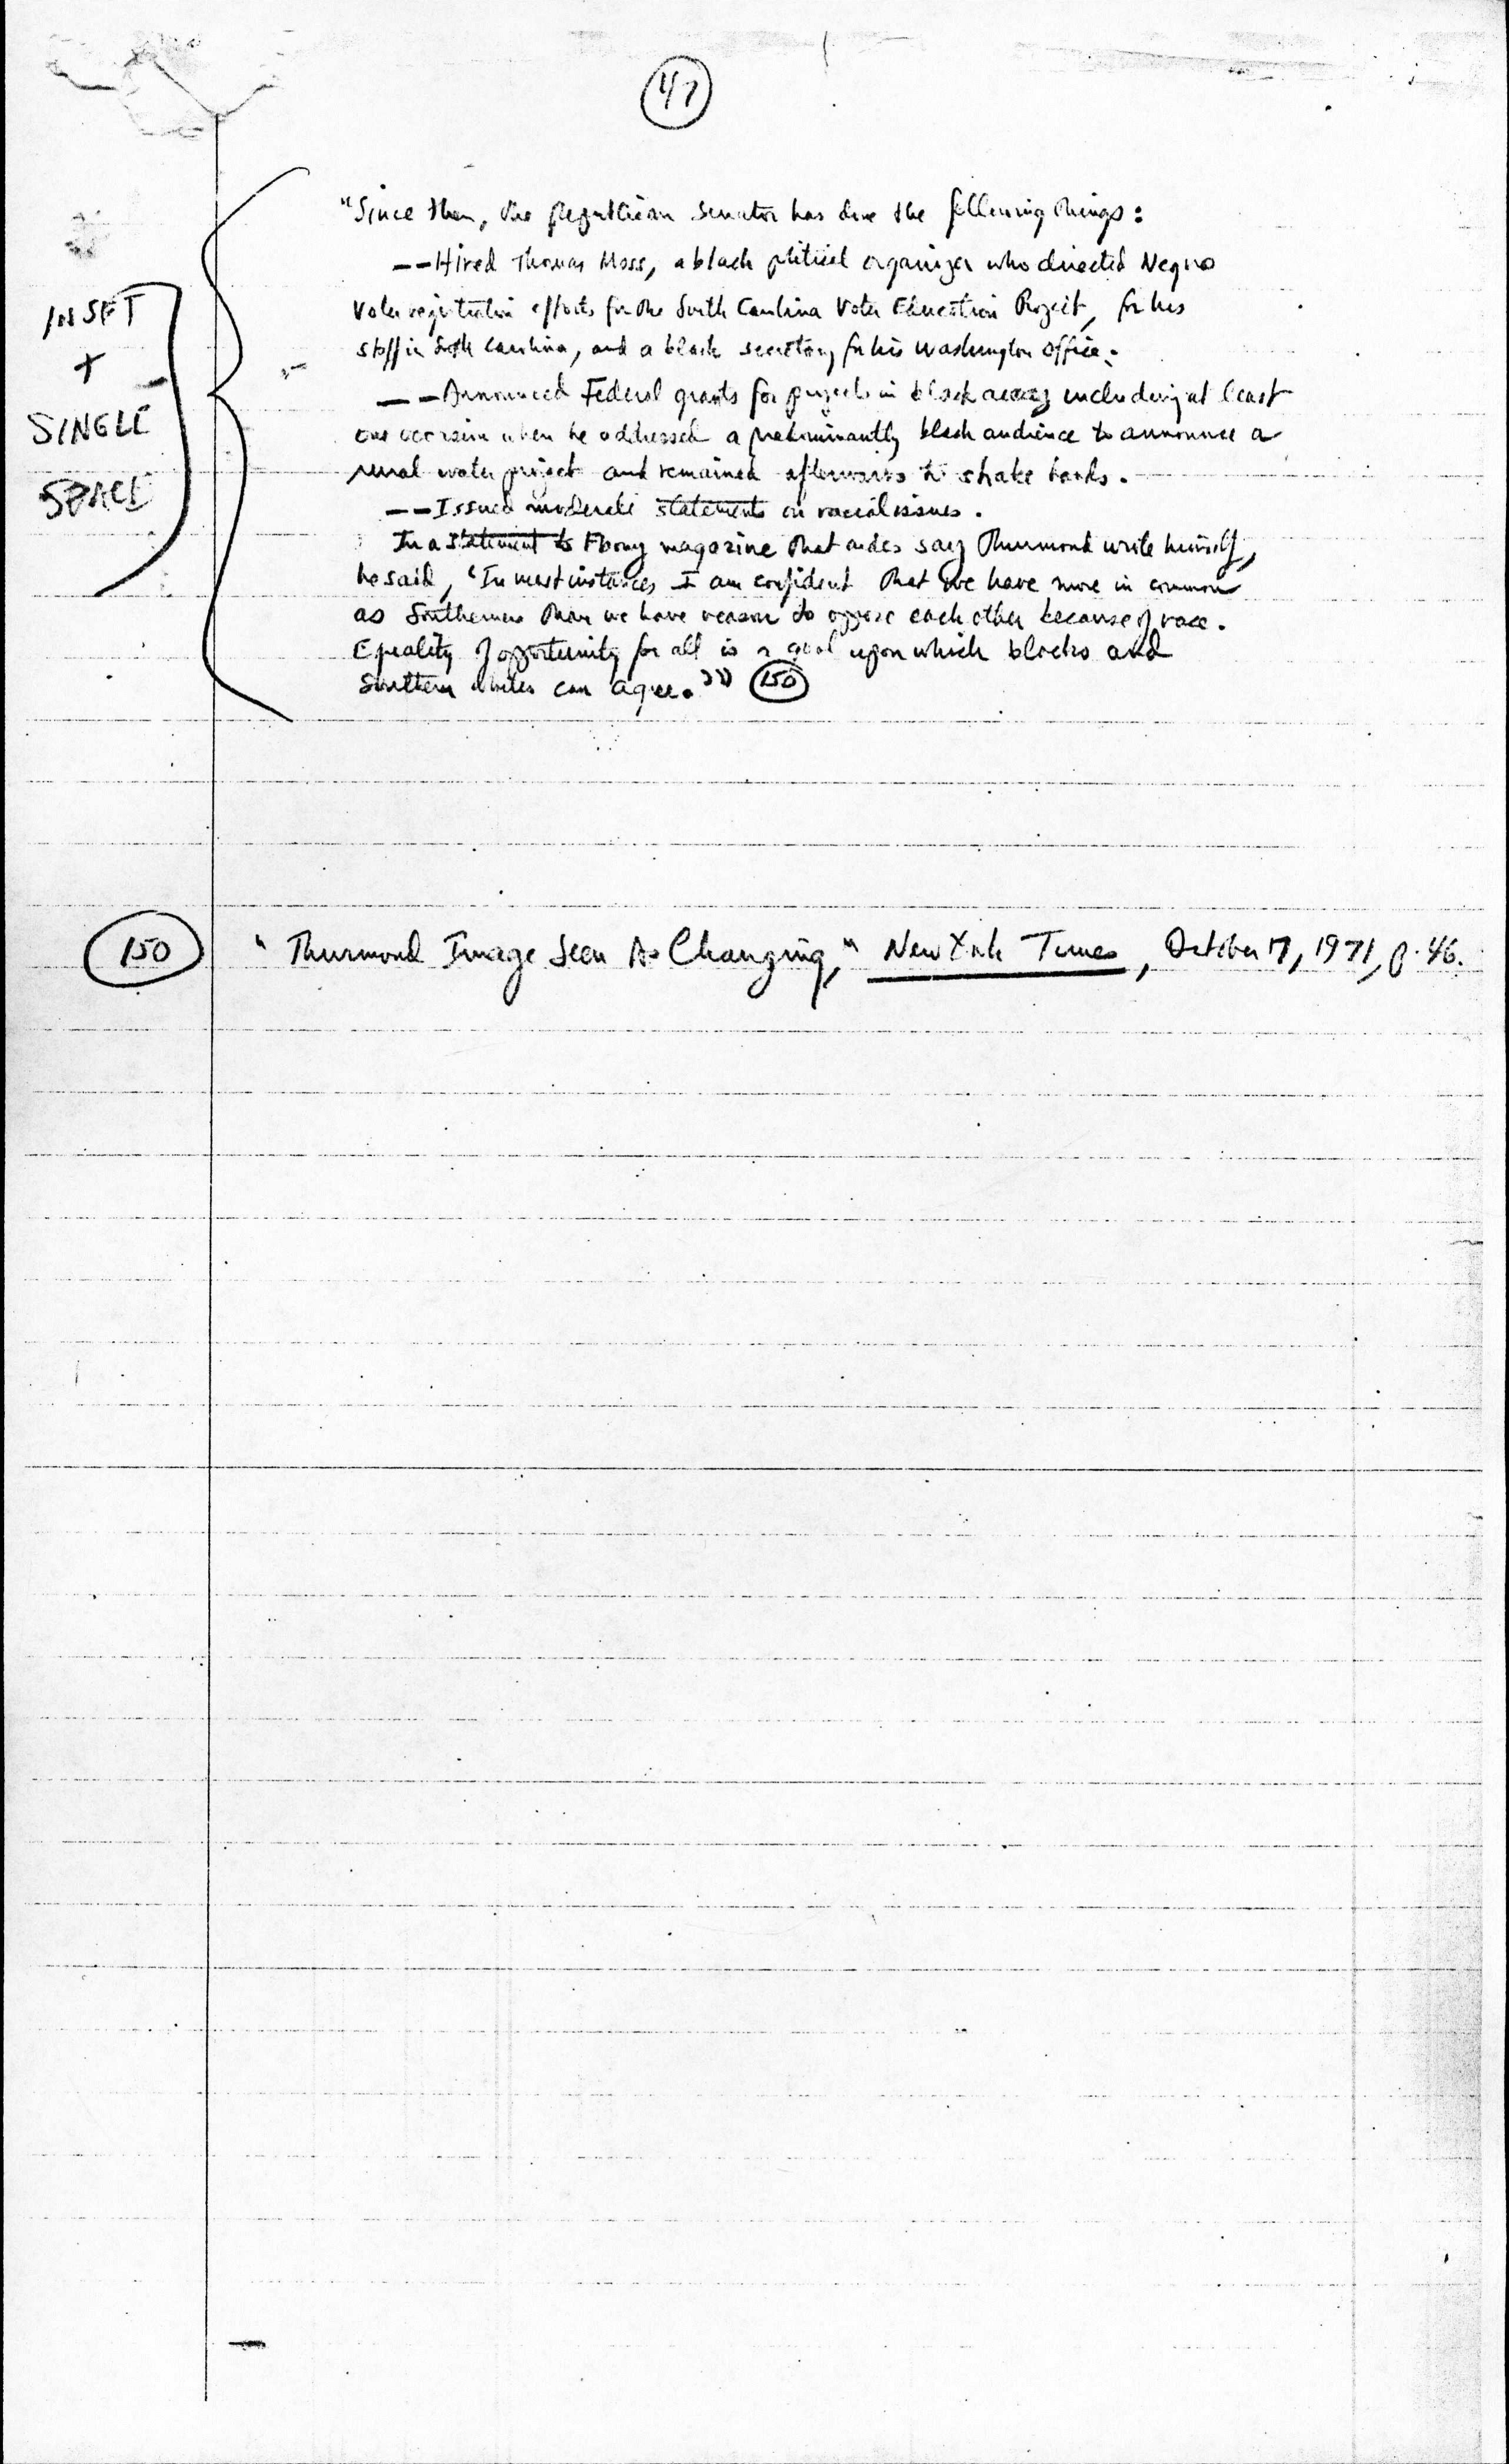 47
"Since then, the Republican Senator has done the following things:
--Hired Thomas Moss, a black political organizer who directed Negro
voter registration efforts for the South Carolina Voter Education Project, for his
staff in South Carolina, and a black secretary for his Washington office.
--Announced Federal grants for projects in black areas including at least
one occasion when he addressed a predominantly black audience to announce a
rural water project and remained afterwards to shake hands.
--Issued moderate statements on racial issues.
In a statement to Ebony magazine that aides say Thurmond wrote himself,
he said, 'In most instances I am confident that we have more in common
as Southerners than we have reason to oppose each other because of race.
Equality of opportunity for all is a goal upon which blacks and
Southern whites can agree.'" 150
INSET
+
SINGLE
SPACE
150 "Thurmond Image Seen As Changing," New York Times, October 17, 1971, p. 46.